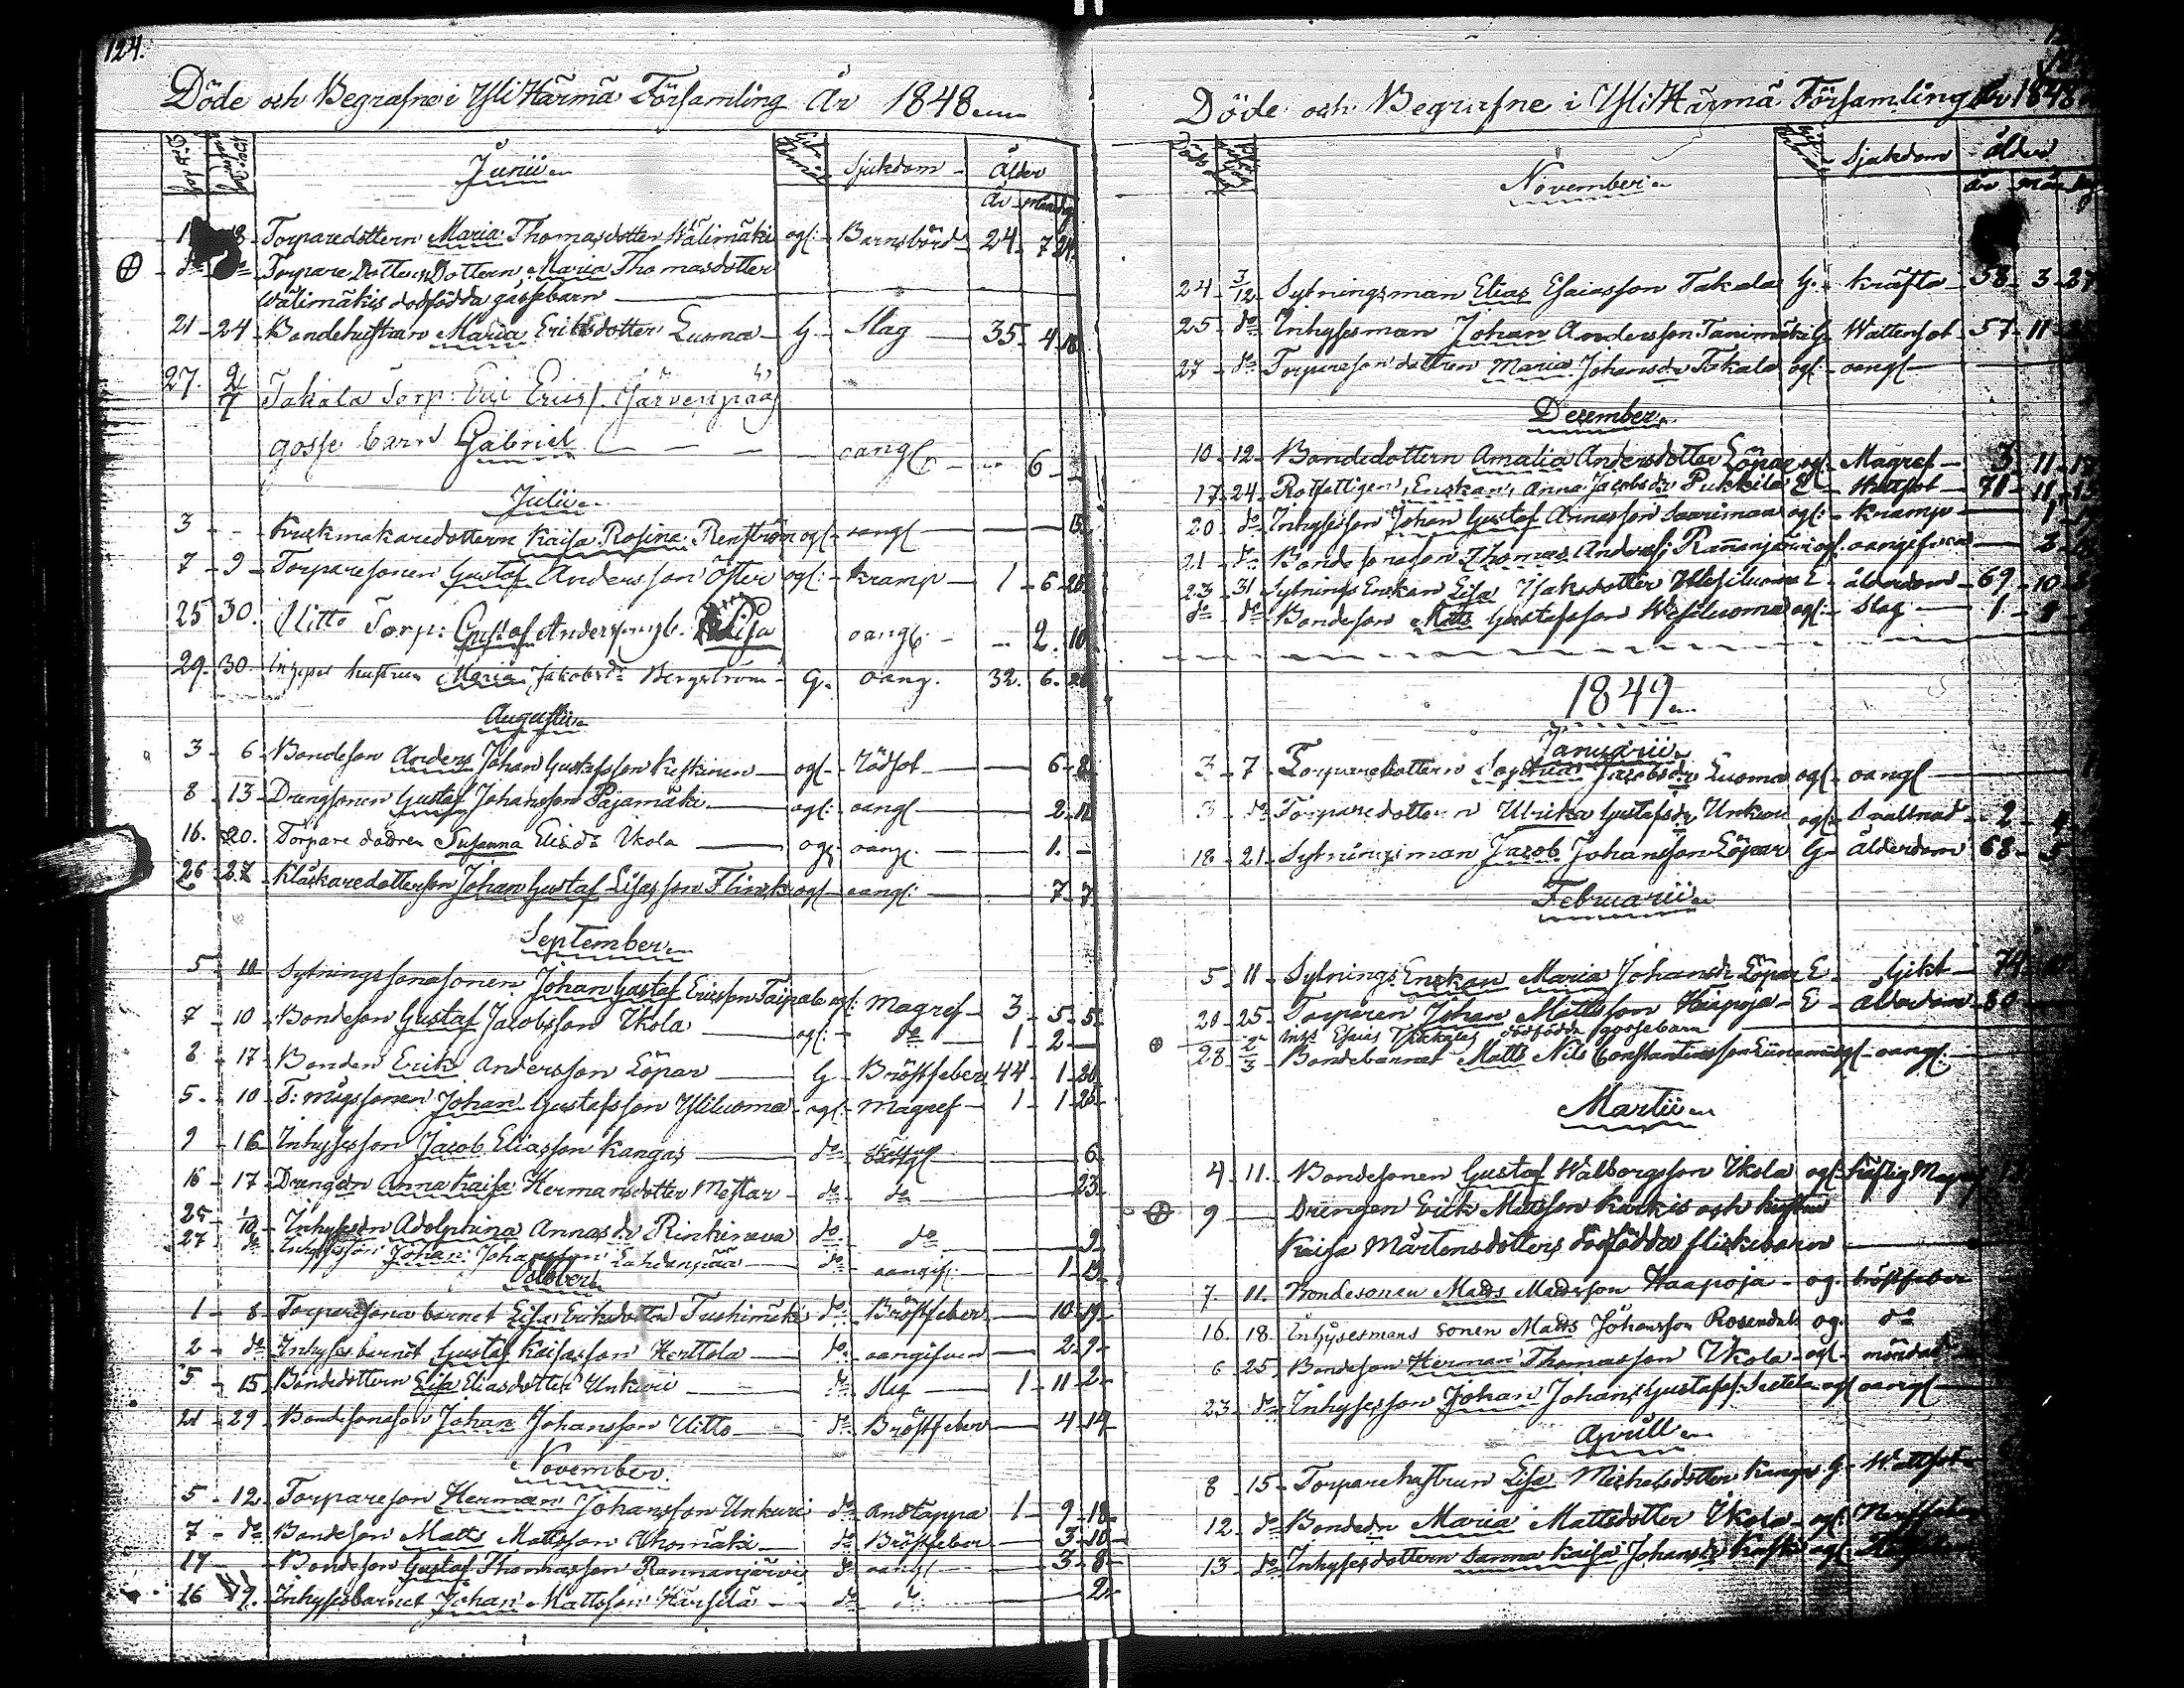 124.
Döde och Begrafne i Yli Härmä Församling År 1848
Junii
Sjukdom Ålder
År
18 Torparedottern Maria Thomasdotter Wälimäki ogl: Barnsbörd 24 7 24
do Torpare Dotterns Dottern, Maria Thomasdotter
Wälimäkis dödfödda gåssebarn
21 24 Bondehustrun Maria Eriksdotter Luoma G Slag 35 4 18
27. 2/7 Takala Torp: Eric Ericss. Järvenpääs
gosse barn Gabriel oangl. 6
Julii
3 Krukmakaredottern Kaisa Rosina Renström ogl oangl
7 9 Torparesonen Gustaf Andersson Öster ogl: kramp 1 6
25 30. Uitto Torp: Gustaf Anderss Lisa oangl. 2. 10
29. 30. Inhyses hustrun Maria Jakobsdr Bergström G. oang. 32. 6.
Augustii
3 6 Bondeson Anders Johan Gustafsson Keskinen ogl Rödsot 6
8 13 Drengsonen Gustaf Johansson Pajamäki ogl: oangl 2 11
16. 20. Torpare dottren Susanna Eliedr Ikola ogl oangl. 1.
26 27 Klåckaredotterson Johan Gustaf Lisasson Flinck ogl oangl: 7 7
September
5 10 Sytningssonasonen Johan Gustaf Ericsson Taipale ogl: Magref 3 5 5
7 10 Bondeson Gustaf Jacobsson Ikola ogl: do 1 2
8 17 Bonden Erik Andersson Löpar G Bröstfeber 44 1 20
5. 10 T: mågssonen Johan Gustafsson Yliluoma ogl: Magref 1 1 26
9 16 Inhysesson Jacob Eliasson Kangas do oangl 6
16 17 Drengdn Anna Kaisa Hermansdotter Mestar do do 23
25 1/10 Inhysesdn Adolphina Annasdr Rinkineva do do 9
27 do Inhysesson Johan Johansson Lahdenpää do oangif: 1 13
October
1 8 Torparesona barnet Lisa Eriksdotter Tushimäki do Bröstfeber 10 19
2 do Inhyses barnet Gustaf Kaisasson Herttola do oangifven 2 9
5 15 Bondedottern Lisa Eliasdotter Unkuri do Slag 1 11 2
21 29 Bondesonason Johan Johansson Uitto do Bröstfeber 4 14
November
5 12 Torpareson Herman Johansson Unkuri do Andtäppa 1 9 18
7 do Bondeson Matts Mattsson Ahomäki do Bröstfeber 3 10
14 Bondeson Gustaf Thomasson Rannanjärvi do oangl 3 8
16 19. Inhysesbarnet Johan Mattsson Härsilä do do 2
Döde och Begrafne i Yli Härmä Församling År 1848
November
Sjukdom Ålder
År
24 3/12 Sytningsman Elias Esaiasson Takala G. Kräfta 58 3 27
25 do Inhysesman Johan Andersson Tanimäki G Wattensot 57 11
27 do Torpareson dottren Maria Johansdr Takala ogl: oangl
December
10 12 Bondedottern Amalia Andersdotter Löpar ogl Magref 3 11
17 24 Rotfattigen, Enkan, Anna Jacobsdr Pukkila E 71 11
20 do Inhysesson Johan Gustaf Annasson Saarimaa ogl: Kramp 1
21 do Bondesonason Thomas Anderss. Rannanjärvi ogl. oangifven 3
23 31 Sytnings Enkan Lisa Isaksdotter Wesiluoma E ålderdom 69 10
do do Bondeson Matts Gustafsson Wesiluoma ogl: Slag 1
1849
Januarii
3 7 Torparedottern Sophia Jacobsdr Luoma ogl oangl
3 do Torparedottern Ulrika Gustafsdr Unkuri ogl Svullnad 2
18 21 Sytningsman Jacob Johansson Löpar G Ålderdom 68 5
Februarii
5 11 Sytnings Enkan Maria Johansdr Löpar E Gikt 74
20 25 Torparen Johan Mattsson Haapoja E Ålderdom 80
Inhs Esaias Tikkalas dödfödda gossebarn
28 2/3 Bondebarnet Matts Nils Constantinsson Liinamaa ogl oangl:
Martii
4 11. Bondesonen Gustaf Walborgsson Ikola ogl
9 Drengen Erik Mattsson Karkis och hustrus
Kaisa Mårtensdotters dödfödda flickebarn
7. 11. Bondesonen Matts Mattsson Haapoja og. bröstfeber
16. 18. Inhysesmans sonen Matts Johansson Rosendal og. do
6 25 Bondeson Herman Thomasson Ikola ogl
23 do Inhysesson Johan Johans Gustafss: ogl oangl
Aprill
8 15 Torparehustrun Lisa Michelsdotter Kangas G Wattsot
12 do Bondedn Maria Mattsdotter Ikola ogl:
13 do Inhysesdottern Sanna Kaisa Johansdr ogl